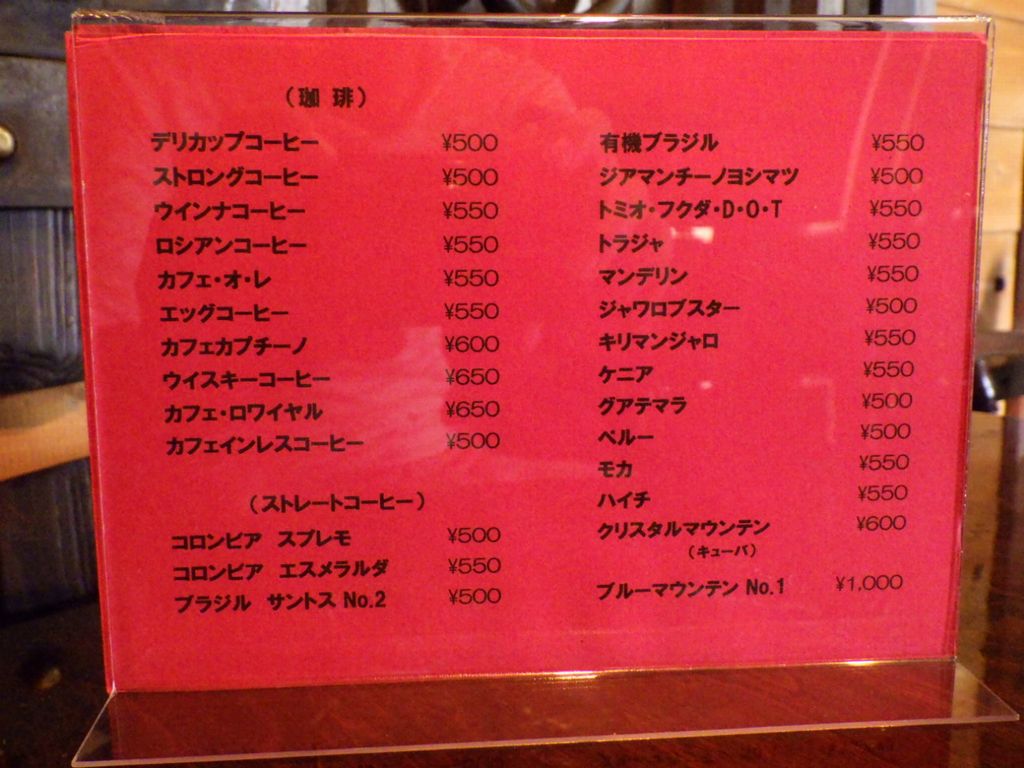 （珈 琲）
デリカップコーヒー ¥500
ストロングコーヒー ¥500
ウインナコーヒー ¥550
ロシアンコーヒー ¥550
カフェ・オ・レ ¥550
エッグコーヒー ¥550
カフェカプチーノ ¥600
ウイスキーコーヒー ¥650
カフェ・ロワイヤル ¥650
カフェインレスコーヒー ¥500
（ストレートコーヒー）
コロンビア スプレモ ¥500
コロンビア エスメラルダ ¥550
ブラジル サントス No.2 ¥500
有機ブラジル ¥550
ジアマンチーノヨシマツ ¥500
トミオ・フクダ・D・O・T ¥550
トラジャ ¥550
マンデリン ¥550
ジャワロブスター ¥500
キリマンジャロ ¥550
ケニア ¥550
グアテマラ ¥500
ペルー ¥500
モカ ¥550
ハイチ ¥550
クリスタルマウンテン ¥600
（キューバ）
ブルーマウンテン No.1 ¥1,000